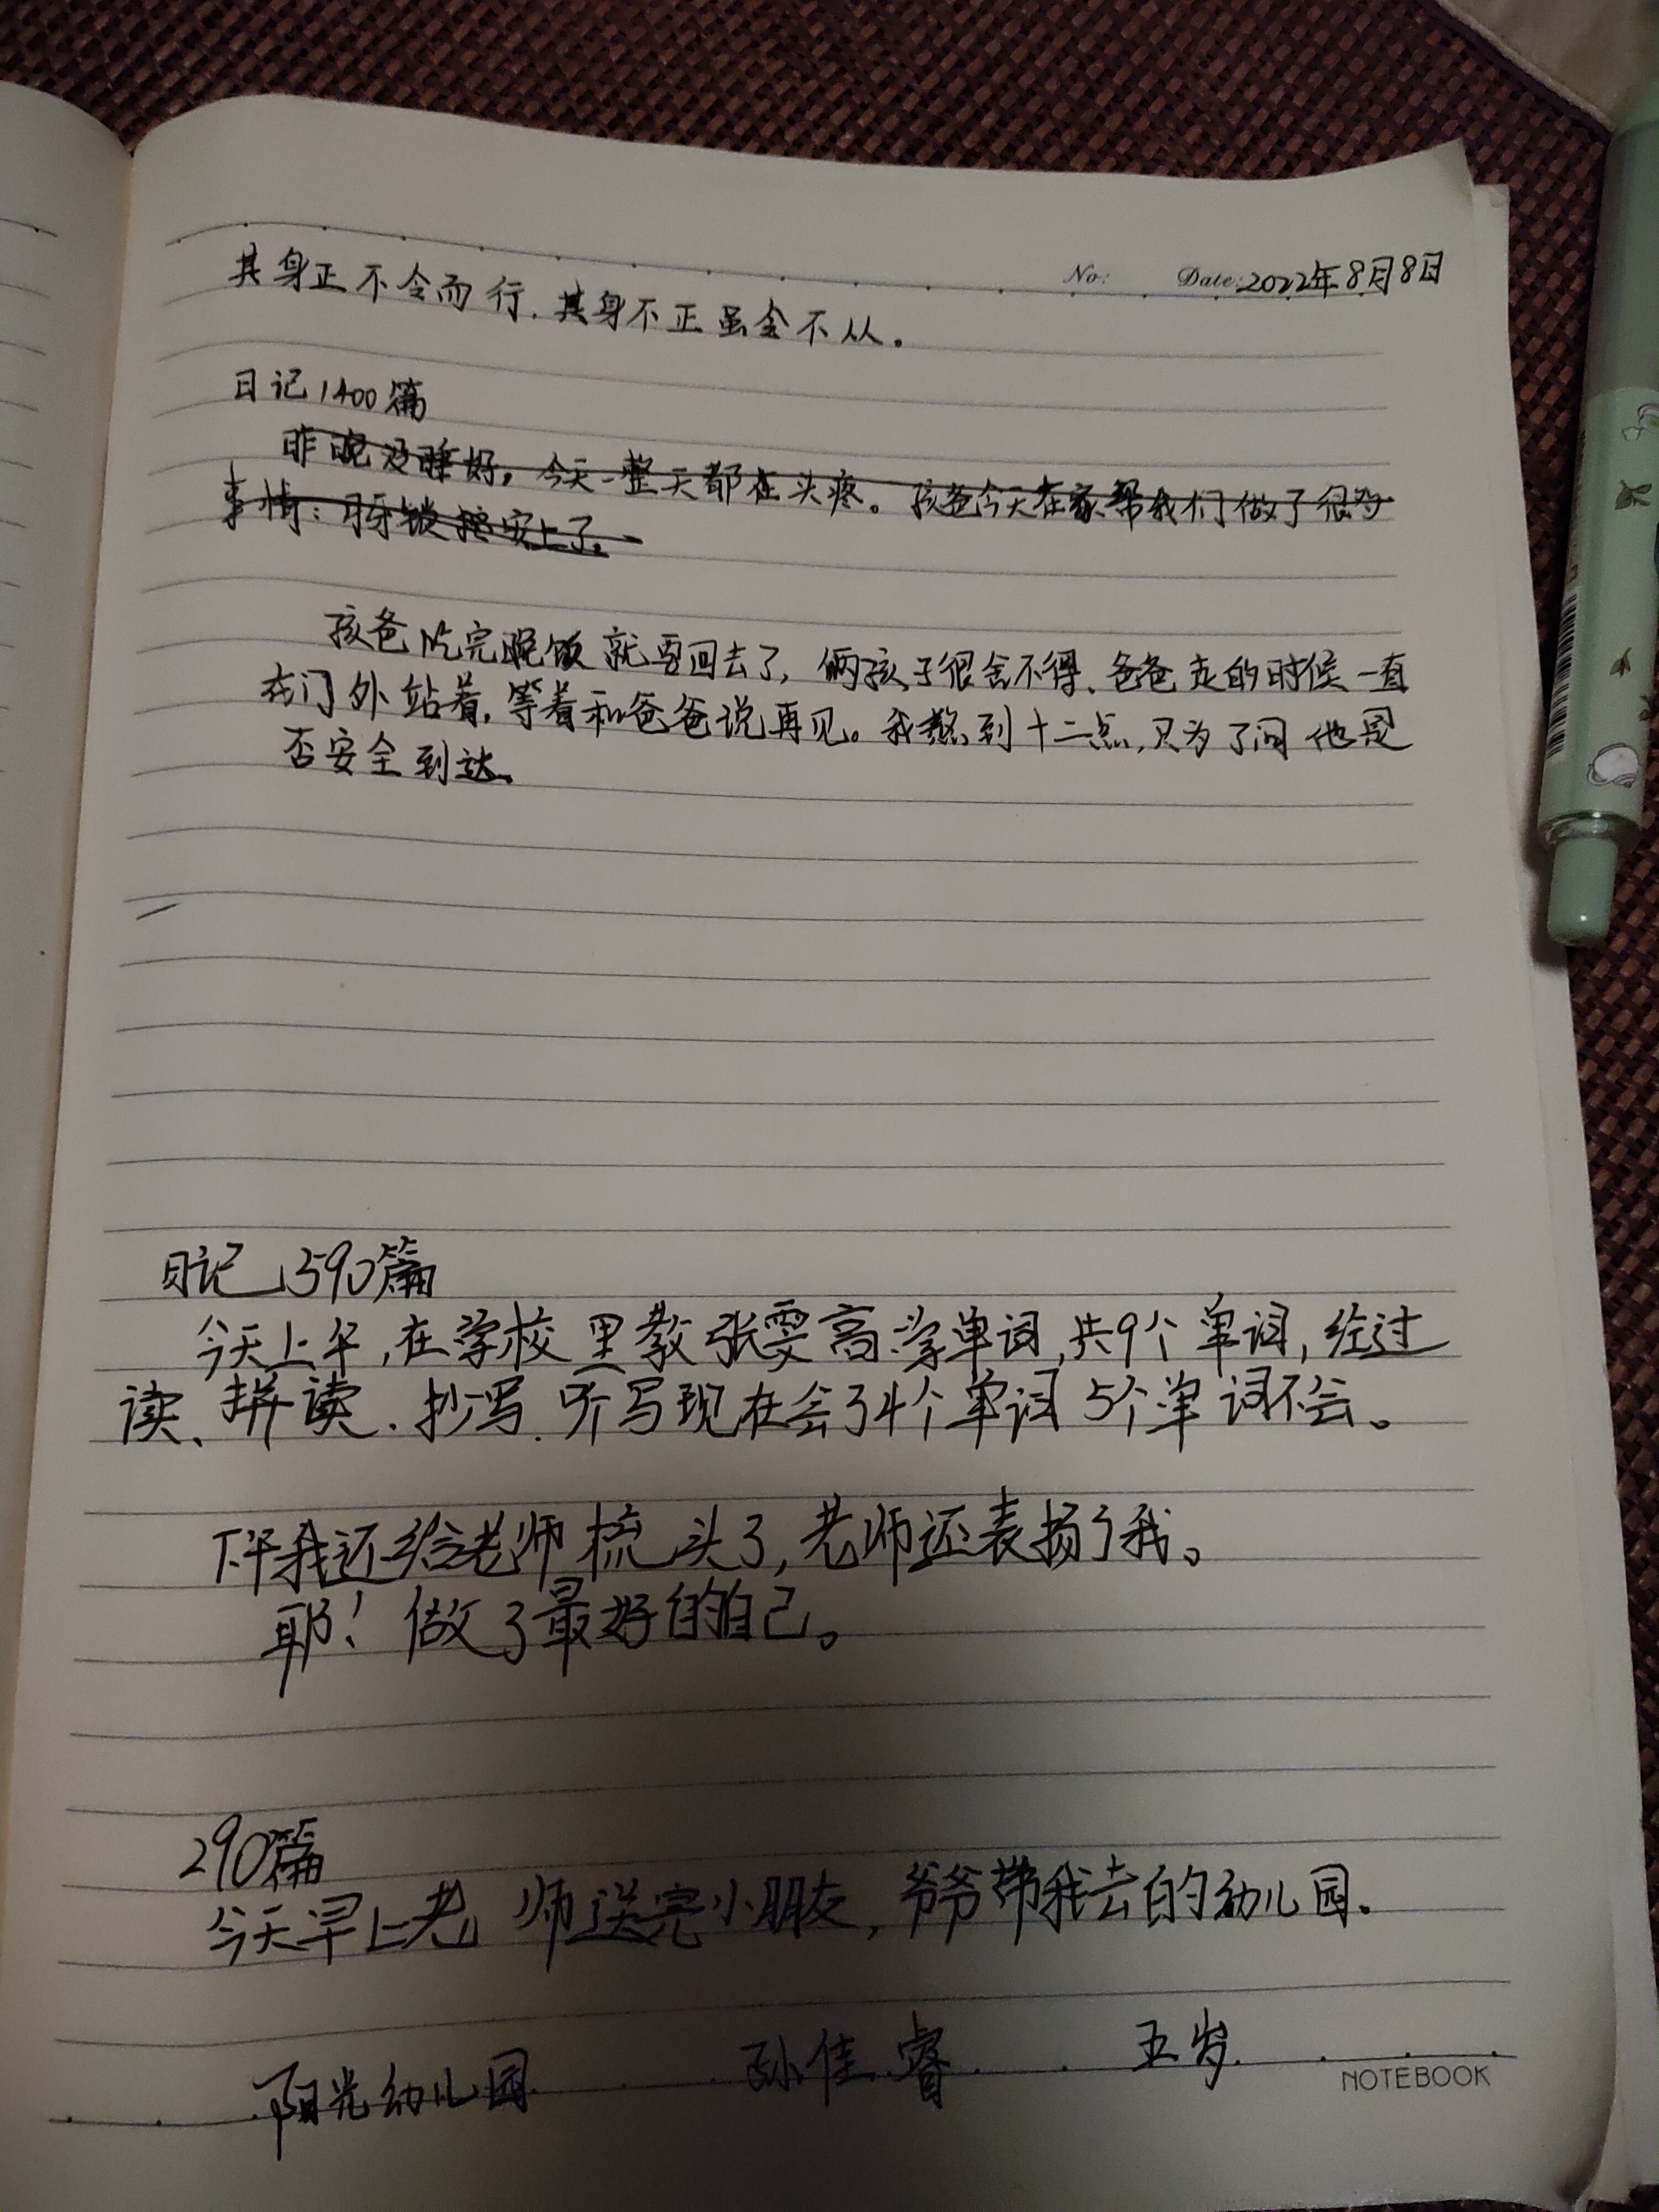 No: Date: 2022年8月8日
其身正不令而行.其身不正虽令不从。
日记1400篇
昨晚没睡好，今天一整天都在头疼。孩爸今天在家帮我们做了很多
事情：牙锁 安上了。
孩爸吃完晚饭就要回去了，俩孩子很舍不得、爸爸走的时候一直
在门外站着，等着和爸爸说再见。我熬到十二点，只为了问他是
否安全到达。
日记1390篇
今天上午，在学校里教张雯高学单词，共9个单词，经过
读、拼读、抄写、听写现在会了4个单词 5个单词不会。
下午我还给老师梳头了，老师还表扬了我。
耶！做了最好的自己。
290篇
今天早上老师送完小朋友，爷爷带我去的幼儿园.
阳光幼儿园 孙佳睿 五岁
NOTEBOOK